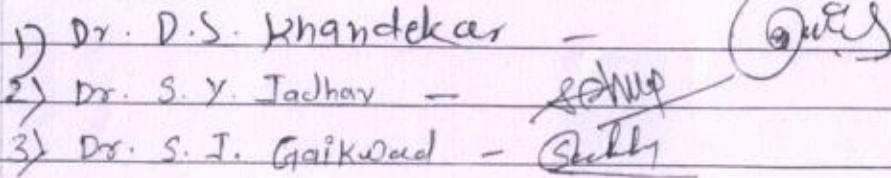 1) Dr. D.S. Khandekar -
2) Dr. S. Y. Jadhav -
3) Dr. S. I. Gaikwad -